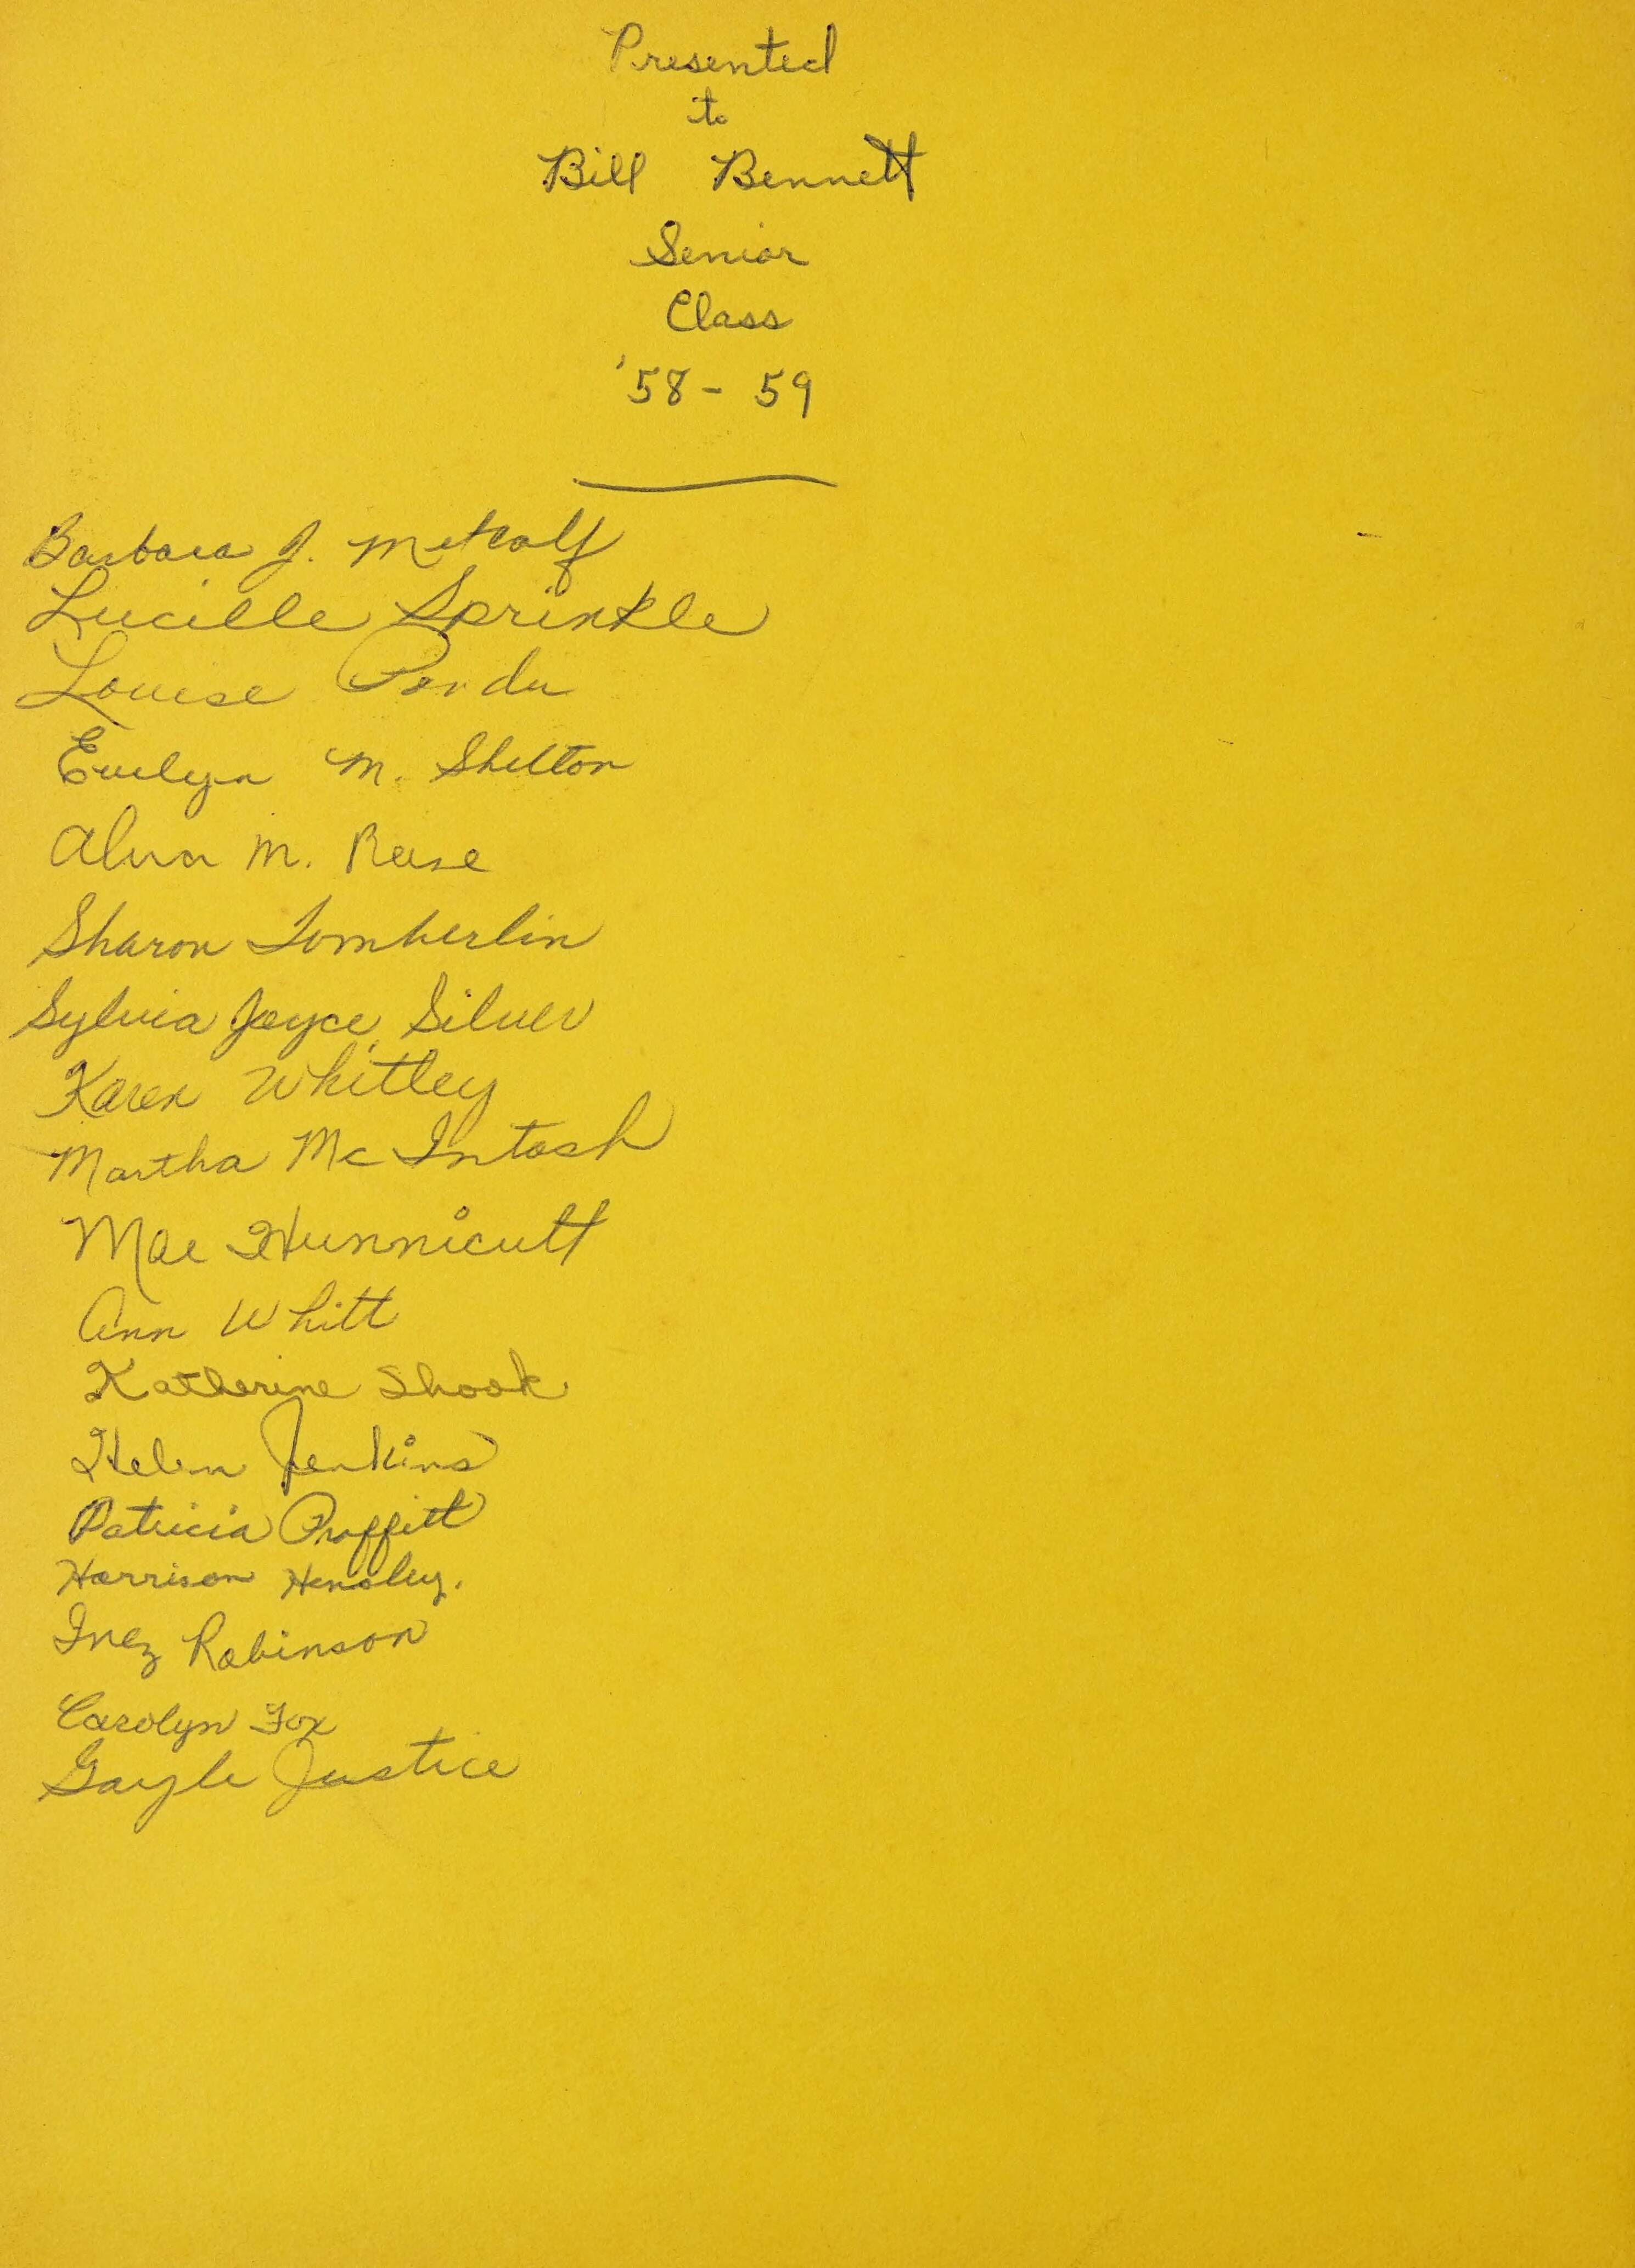 Presented
to
Bill Bennett
Senior
Class
'58 - 59
Barbara J. Metcalf
Lucille Sprinkle
Louise
Evelyn M. Shelton
M. Reese
Sharon Tomberlin
Sylvia Joyce Silver
Karen Whitley
Martha Mc Intosh
Mae Hunnicutt
Ann Whitt
Katherine Shook
Helen Jenkins
Patricia Proffitt
Harrison Hensley.
Inez Robinson
Carolyn Fox
Gayle Justice